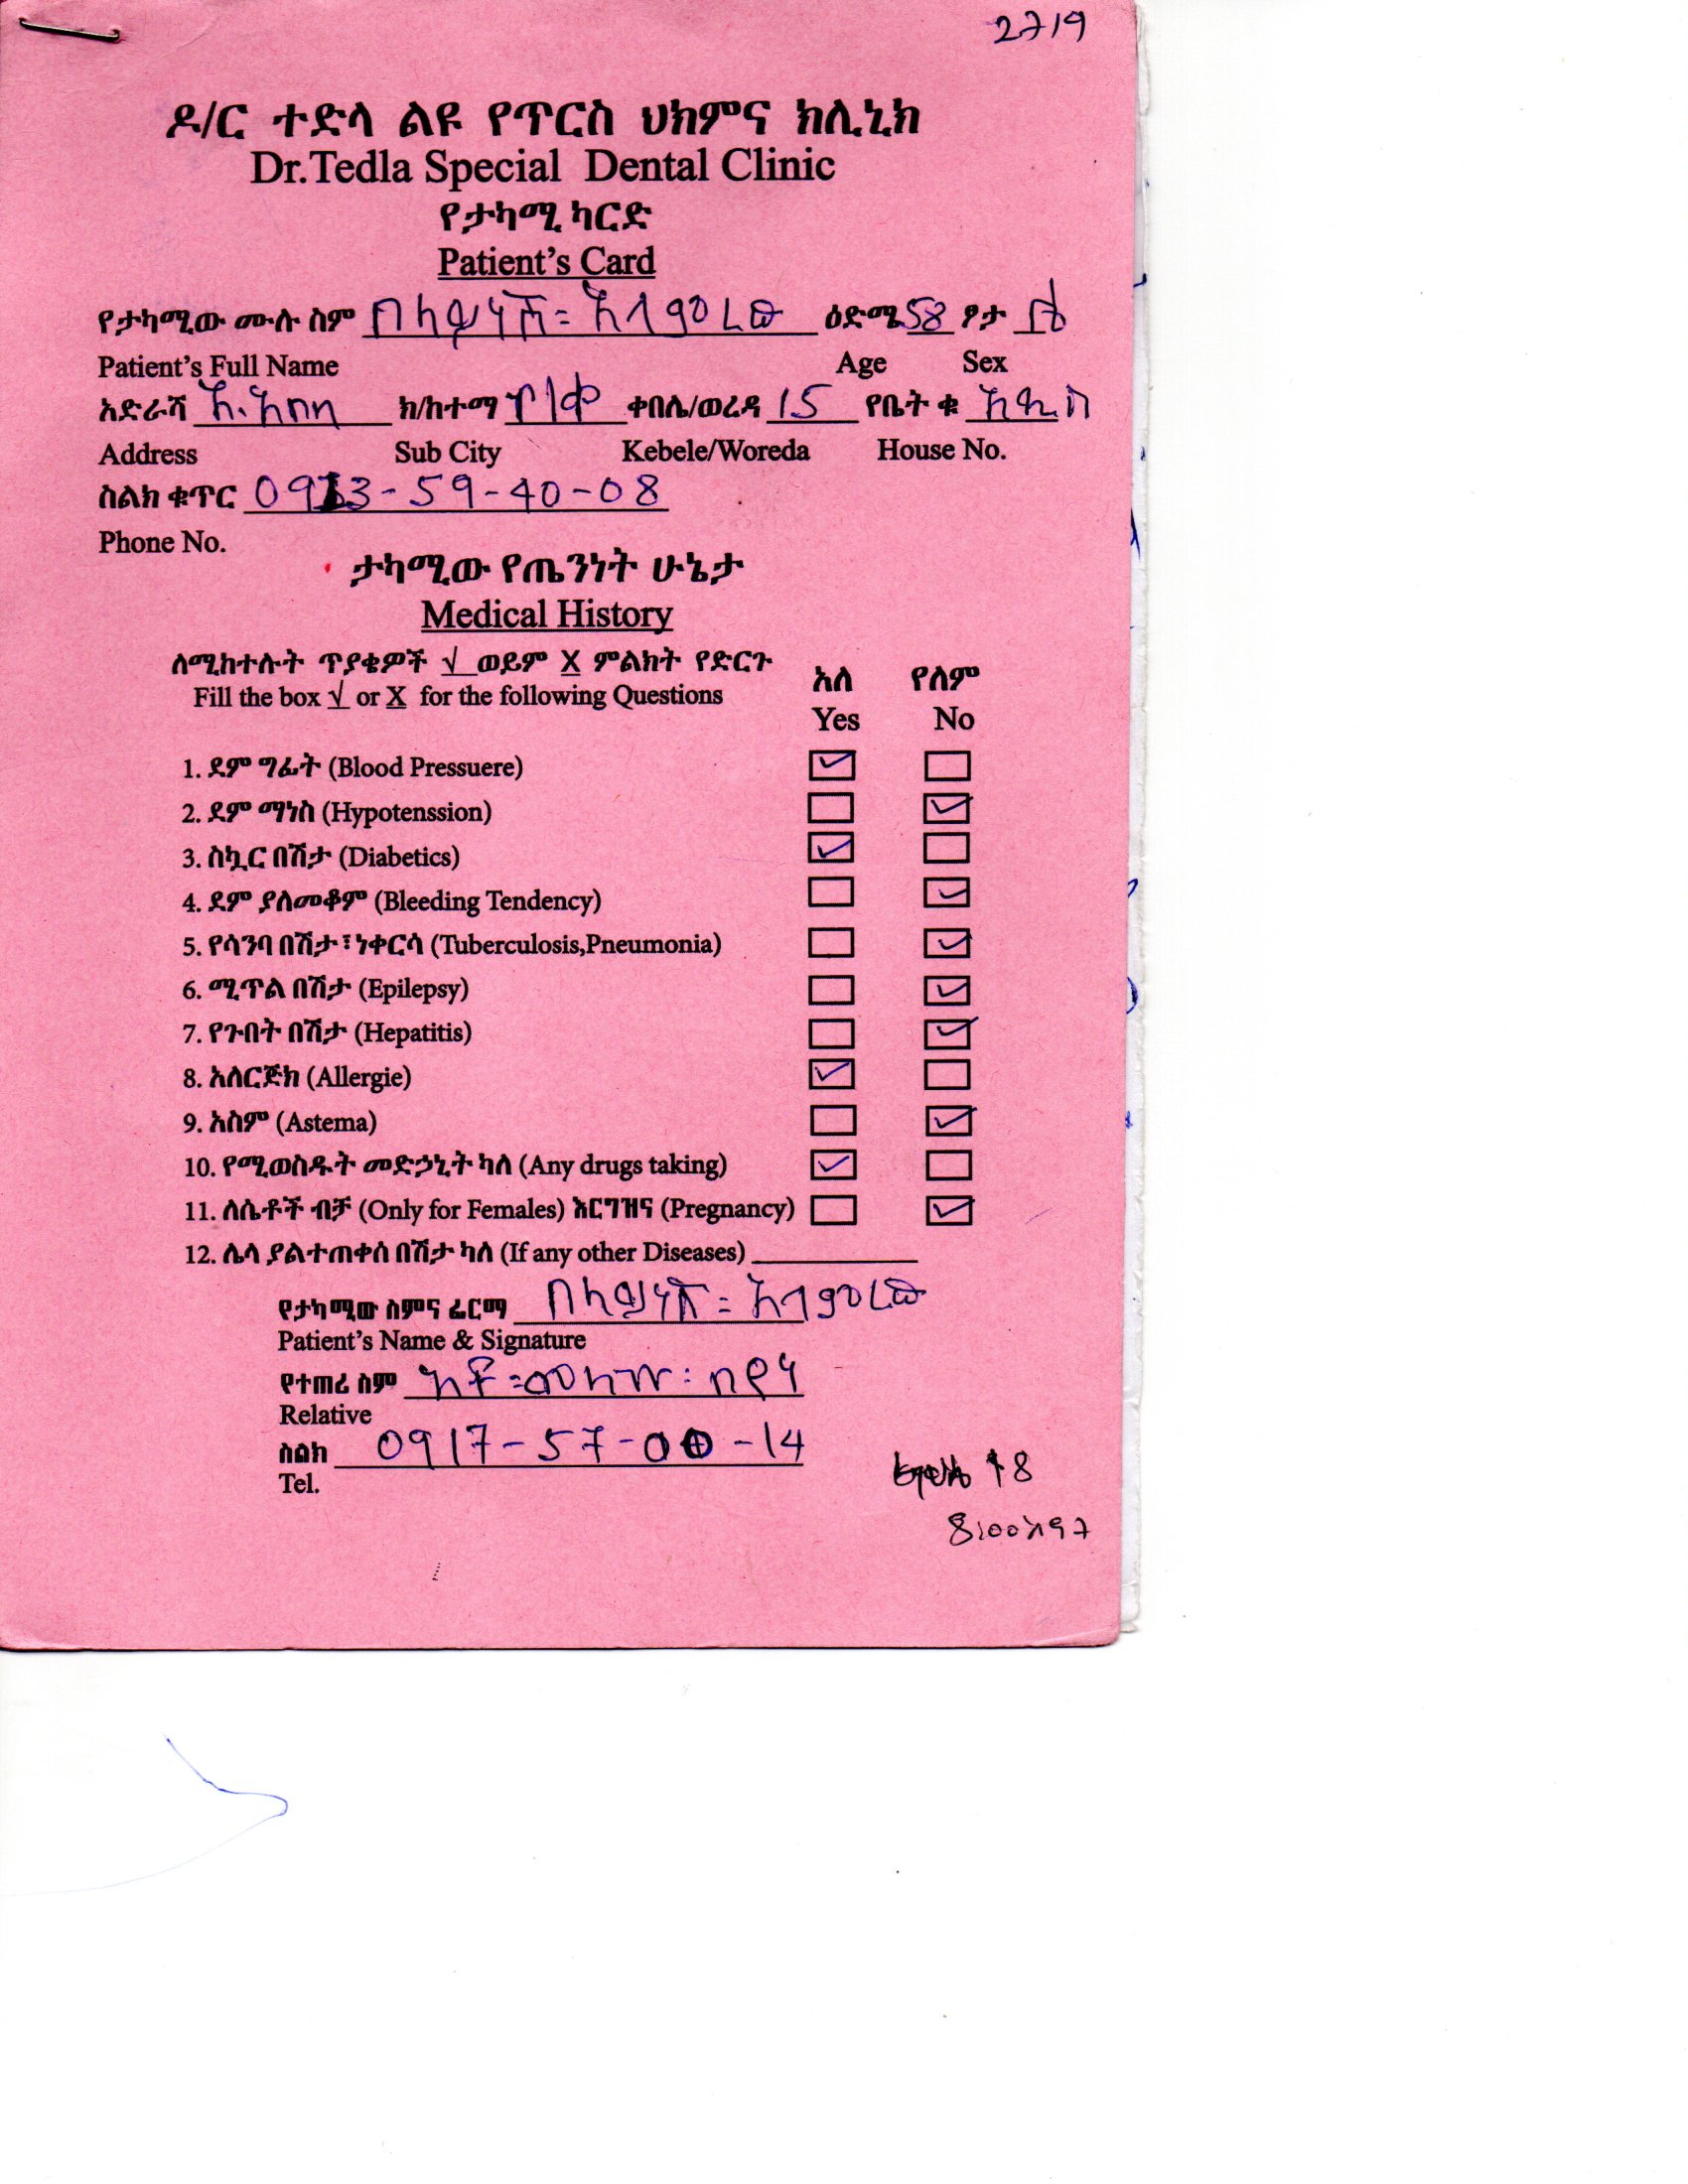 2719
ዶ/ር ተድላ ልዩ የጥርስ ህክምና ክሊኒክ
Dr.Tedla Special Dental Clinic
የታካሚ ካርድ
Patient's Card
የታካሚው ሙሉ ስም በላይነሽ = አላምረው ዕድሜ 58 ፆታ ሴ
Patient's Full Name Age Sex
አድራሻ አ.አበባ ክ/ከተማ ቀበሌ/ወረዳ 15 የቤት ቁ አዲስ
Address Sub City Kebele/Woreda House No.
ስልክ ቁጥር 0913-59-40-08
Phone No.
ታካሚው የጤንነት ሁኔታ
Medical History
ለሚከተሉት ጥያቄዎች √ ወይም X ምልክት የድርጉ
Fill the box √ or X for the following Questions
አለ የለም
Yes No
1. ደም ግፊት (Blood Pressuere)
2. ደም ማነስ (Hypotenssion)
3. ስኳር በሽታ (Diabetics)
4. ደም ያለመቆም (Bleeding Tendency)
5. የሳንባ በሽታ፣ ነቀርሳ (Tuberculosis,Pneumonia)
6. ሚጥል በሽታ (Epilepsy)
7. የጉበት በሽታ (Hepatitis)
8. አለርጅክ (Allergie)
9. አስም (Astema)
10. የሚወስዱት መድኃኒት ካለ (Any drugs taking)
11. ለሴቶች ብቻ (Only for Females) እርግዝና (Pregnancy)
12. ሌላ ያልተጠቀሰ በሽታ ካለ (If any other Diseases)
የታካሚው ስምና ፊርማ በላይነሽ = አላምረው
Patient's Name & Signature
የተጠሪ ስም አቶ =
Relative
ስልክ 0917-57-00-14
Tel.